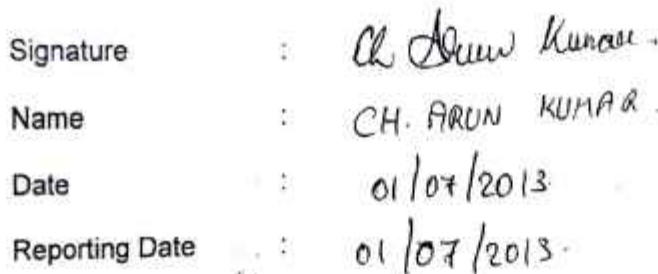 Signature : Ch Arun Kumar.
Name : CH. ARUN KUMAR.
Date : 01/07/2013.
Reporting Date : 01/07/2013.